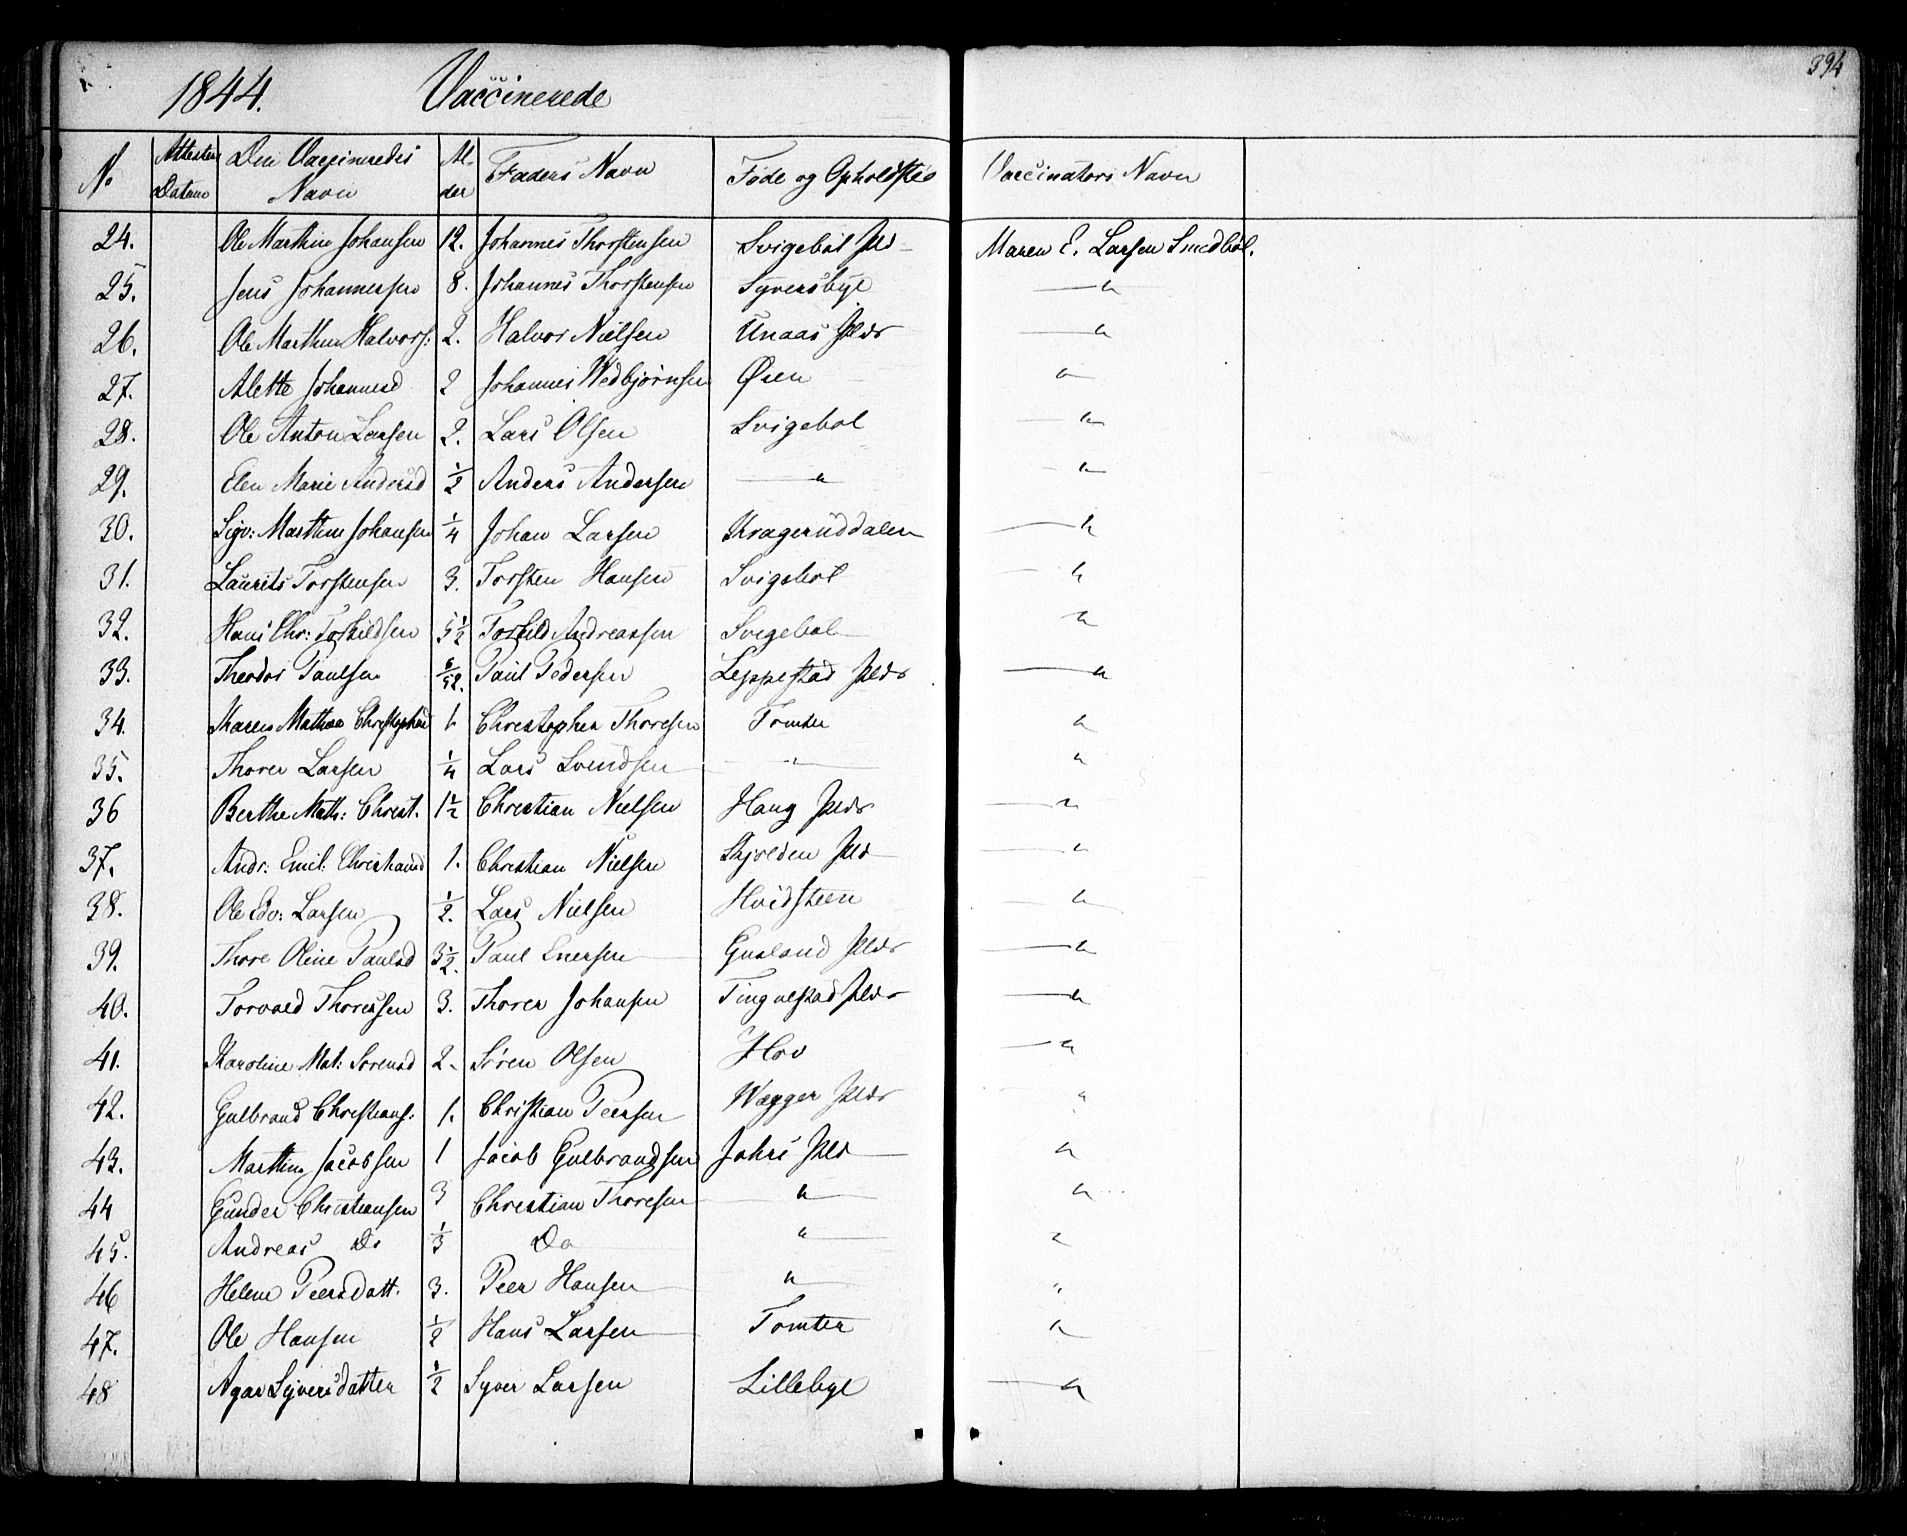 394
1844. Vaccinerede
No Attestens Datum Den Vaccineredes Navn Alder Faders Navn Føde og Opholdsted Vaccinators Navn
24. Ole Marthin Johansen 12. Johannes Thorstensen Svigebøl Plds Maren E. Larsen Smedbøl.
25. Jens Johannesen 8. Johannes Thorstensen Syversbye — " —
26. Ole Marthin Halvors: 2. Halvor Nielsen Unaas Plds — "
27. Alette Johannesd 2 Johannes Wedbjørnsen Øren — " —
28. Ole Anton Larsen 2. Lars Olsen Svigebøl — " —
29. Elen Marie Andersd 1/2 Anders Andersen — " — — " —
30. Sigv: Marthin Johansen 1/4 Johan Larsen Krageruddalen — "
31. Laurits Torstensen 3. Torsten Hansen Svigebøl — "
32. Hans Chr: Torkildsen 5 1/2 Torkild Andreassen Svigebøl "
33. Theodor Paulsen 6/52. Paul Pedersen Leppestad Plds — "
34. Maren Mathea Christophd 1 Christopher Thoresen Tomter "
35. Thorer Larsen 1/4 Lars Svendsen — " — "
36 Berthe Math: Christ. 1 1/2 Christian Nielsen Haug Plds — "
37. Andr: Emil: Christiansd 1. Christian Nielsen Skjolden Plds — "
38. Ole Edv: Larsen 1/2. Lars Nielsen Hvidsteen "
39. Thore Oline Paulsd 3 1/2. Paul Enersen Gusland Plds — "
40. Torvald Thoresen 3. Thorer Johansen Tingulstad Plds — "
41. Karoline Mat: Sørensd 2. Søren Olsen Hov — "
42. Gulbrand Christians: 1. Christian Peersen Wægger Plds "
43. Marthin Jacobsen 1 Jacob Gulbrandsen Jahrs Plds "
44 Gunder Christiansen 3 Christian Thoresen — " — "
45. Andreas Do 1/3 Do " — "
46 Helene Peersdatt. 3. Peer Hansen " — "
47. Ole Hansen 1/2 Hans Larsen Tomter "
48 Agar Syversdatter 1/2 Syver Larsen Lillebye — "